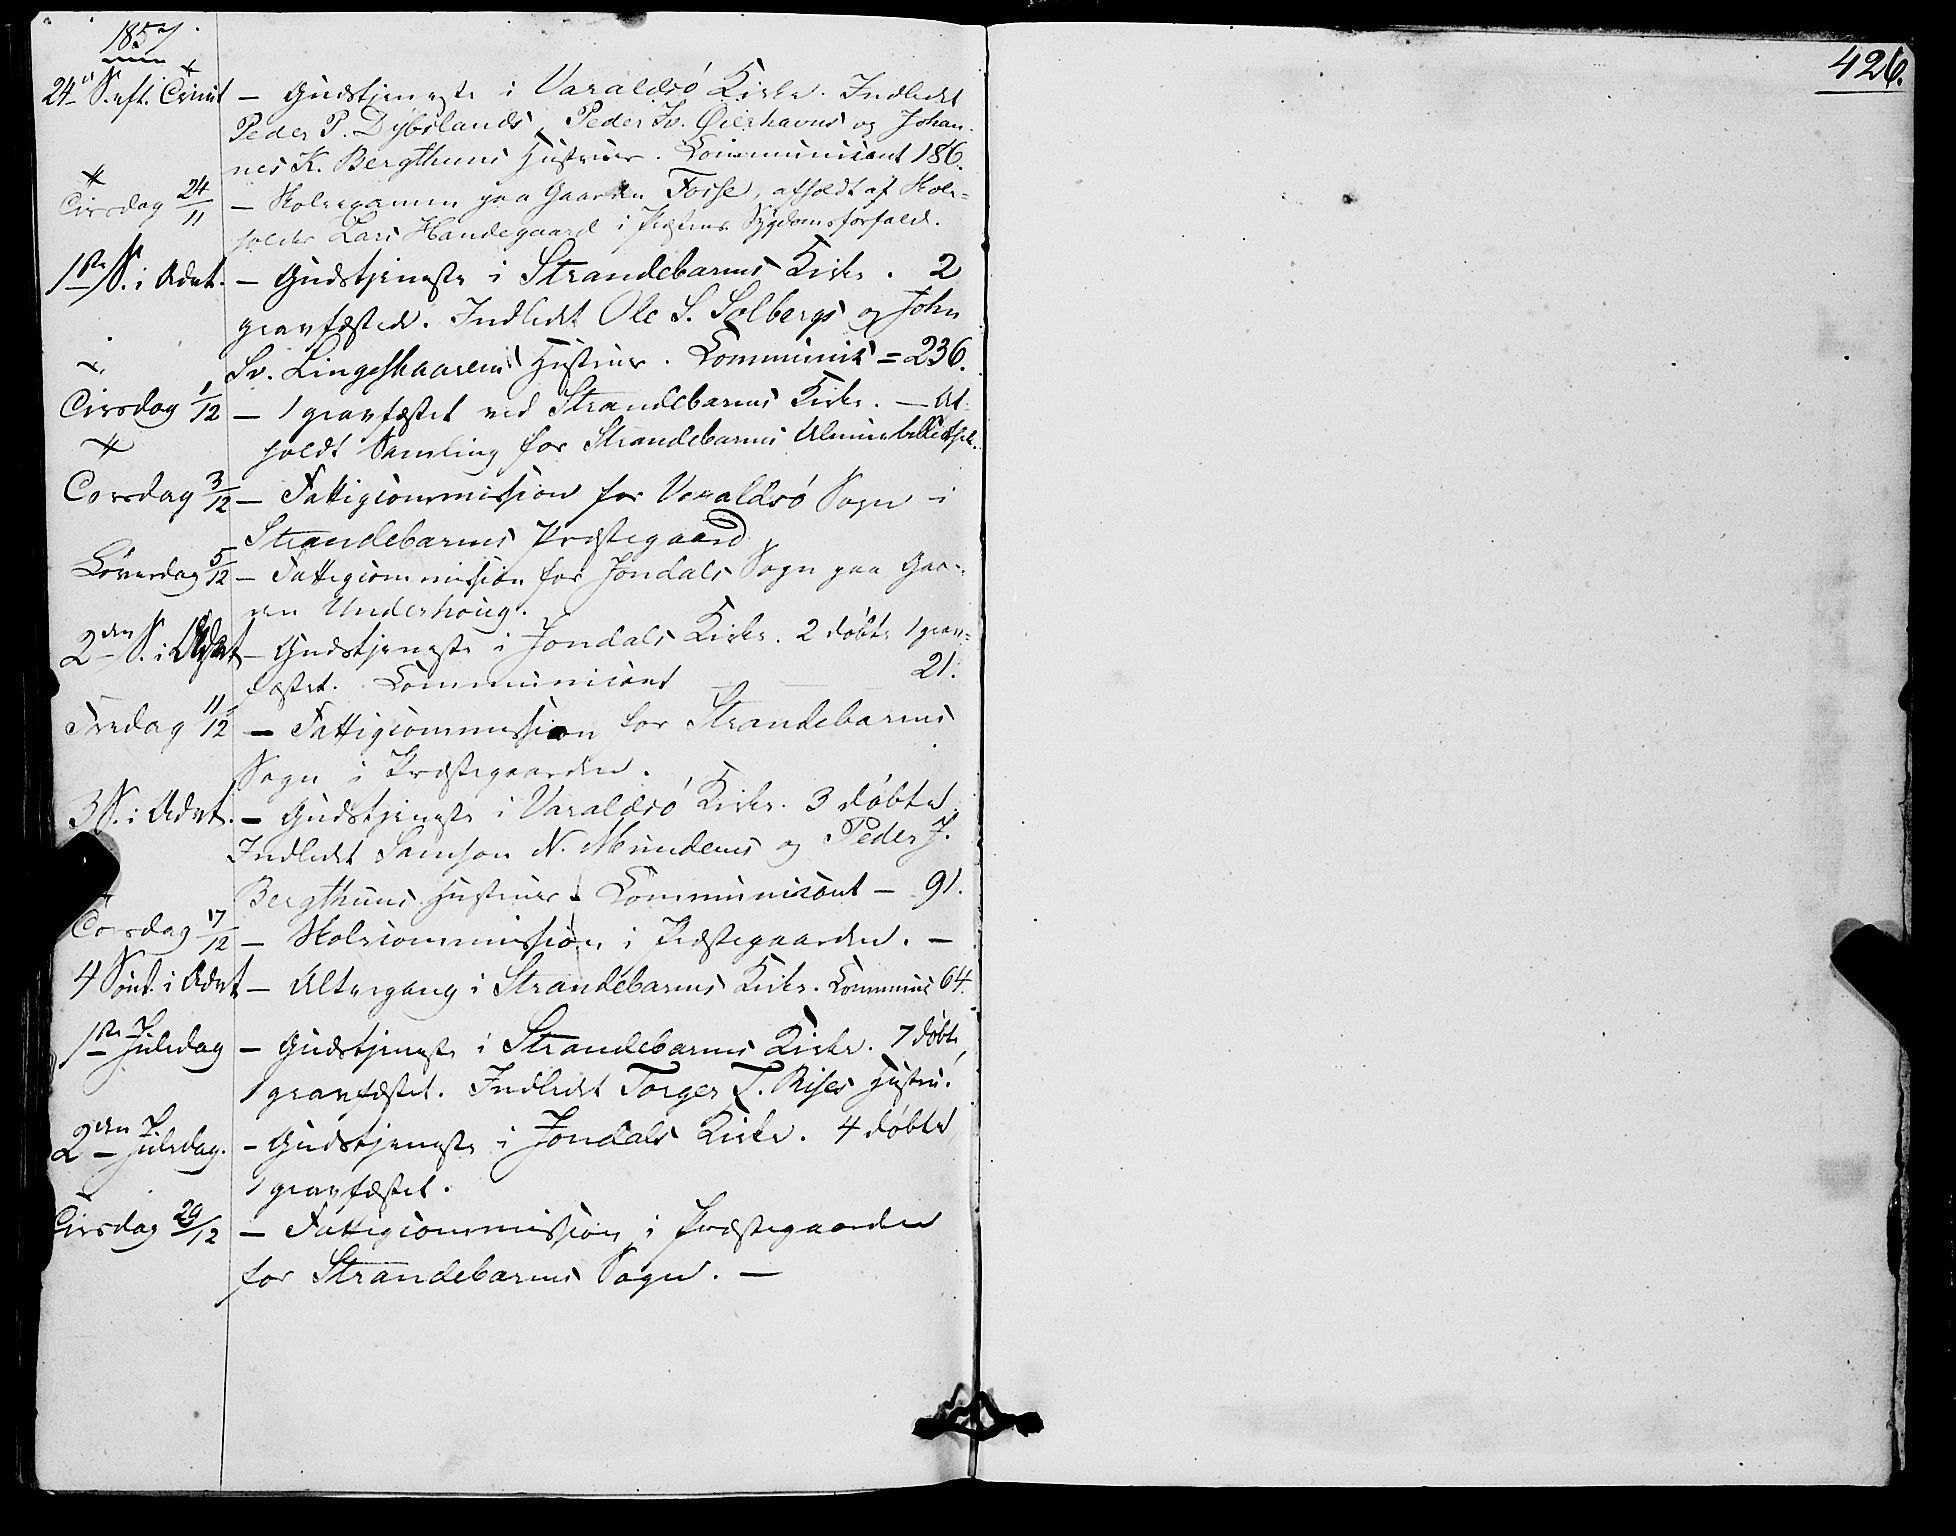 1857
24 S. eft. Trinit – Gudstjeneste i Varaldsö Kirke. Indledet
Peder P. Dybslands, Peder Iv. Øierhavns og Johan-
nes K. Bergthuns Hustruer. Communicant 186.
Tirsdag 24/11 – Skoleexamen paa Gaarden Fosse, afholdt af Skole-
holder Lars Handegaard i Præstens Sygdomsforfald.
1ste S. i Advt. – Gudstjeneste i Strandebarms Kirke. 2
gravfæstede. Indledet Ole S. Solbergs og John
Sv. Lingeskaarens Hustruer. Communic = 236.
Tirsdag 1/12 – 1 gravfæstet ved Strandebarms Kirke. — Af-
holdt Samling for Strandebarms
Torsdag 3/12 – Fattigcommission for Varaldsö Sogn i
Strandebarms Præstegaard
Löverdag 5/12 – Fattigcommission for Jondals Sogn paa Gaa-
en Underhoug.
2den S. i Advt – Gudstjeneste i Jondals Kirke. 2 döbte 1 grav-
fæstet. Communicant — 21.
Fredag 11/12 – Fattigcommission for Strandebarms
Sogn i Præstegaarden.
3 S. i Advt. – Gudstjeneste i Varaldsö Kirke. 3 döbte.
Indledet Samson N. Mundems og Peder J.
Bergthuns Hustruer. Communicant – 91.
Torsdag 17/12 – Skolecommission i Præstegaarden. –
4 Sönd. i Advt – Altergang i Strandebarms Kirke. Communic 64.
1ste Juledag – Gudstjeneste i Strandebarms Kirke. 7 döbte,
1 gravfæstet. Indledet Torger T. Rises Hustru.
2den Juledag. – Gudstjeneste i Jondals Kirke. 4 döbte,
1 gravfæstet.
Tirsdag 29/12 – Fattigcommission i Præstegaarden
for Strandebarms Sogn. —
426.